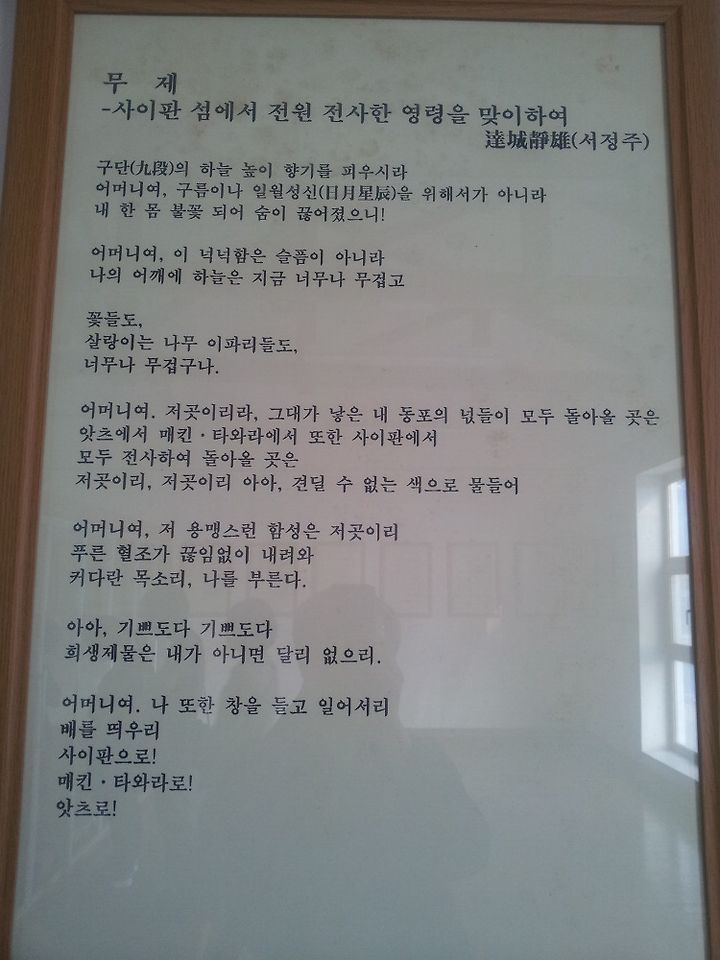 무 제
-사이판 섬에서 전원 전사한 영령을 맞이하여
達城靜雄(서정주)
구단(九段)의 하늘 높이 향기를 피우시라
어머니여, 구름이나 일월성신(日月星辰)을 위해서가 아니라
내 한 몸 불꽃 되어 숨이 끊어졌으니!
어머니여, 이 넉넉함은 슬픔이 아니라
나의 어깨에 하늘은 지금 너무나 무겁고
꽃들도,
살랑이는 나무 이파리들도,
너무나 무겁구나.
어머니여. 저곳이리라, 그대가 낳은 내 동포의 넋들이 모두 돌아올 곳은
앗츠에서 매킨·타와라에서 또한 사이판에서
모두 전사하여 돌아올 곳은
저곳이리, 저곳이리 아아, 견딜 수 없는 색으로 물들어
어머니여, 저 용맹스런 함성은 저곳이리
푸른 혈조가 끊임없이 내려와
커다란 목소리, 나를 부른다.
아아, 기쁘도다 기쁘도다
희생제물은 내가 아니면 달리 없으리.
어머니여. 나 또한 창을 들고 일어서리
배를 띄우리
사이판으로!
매킨·타와라로!
앗츠로!